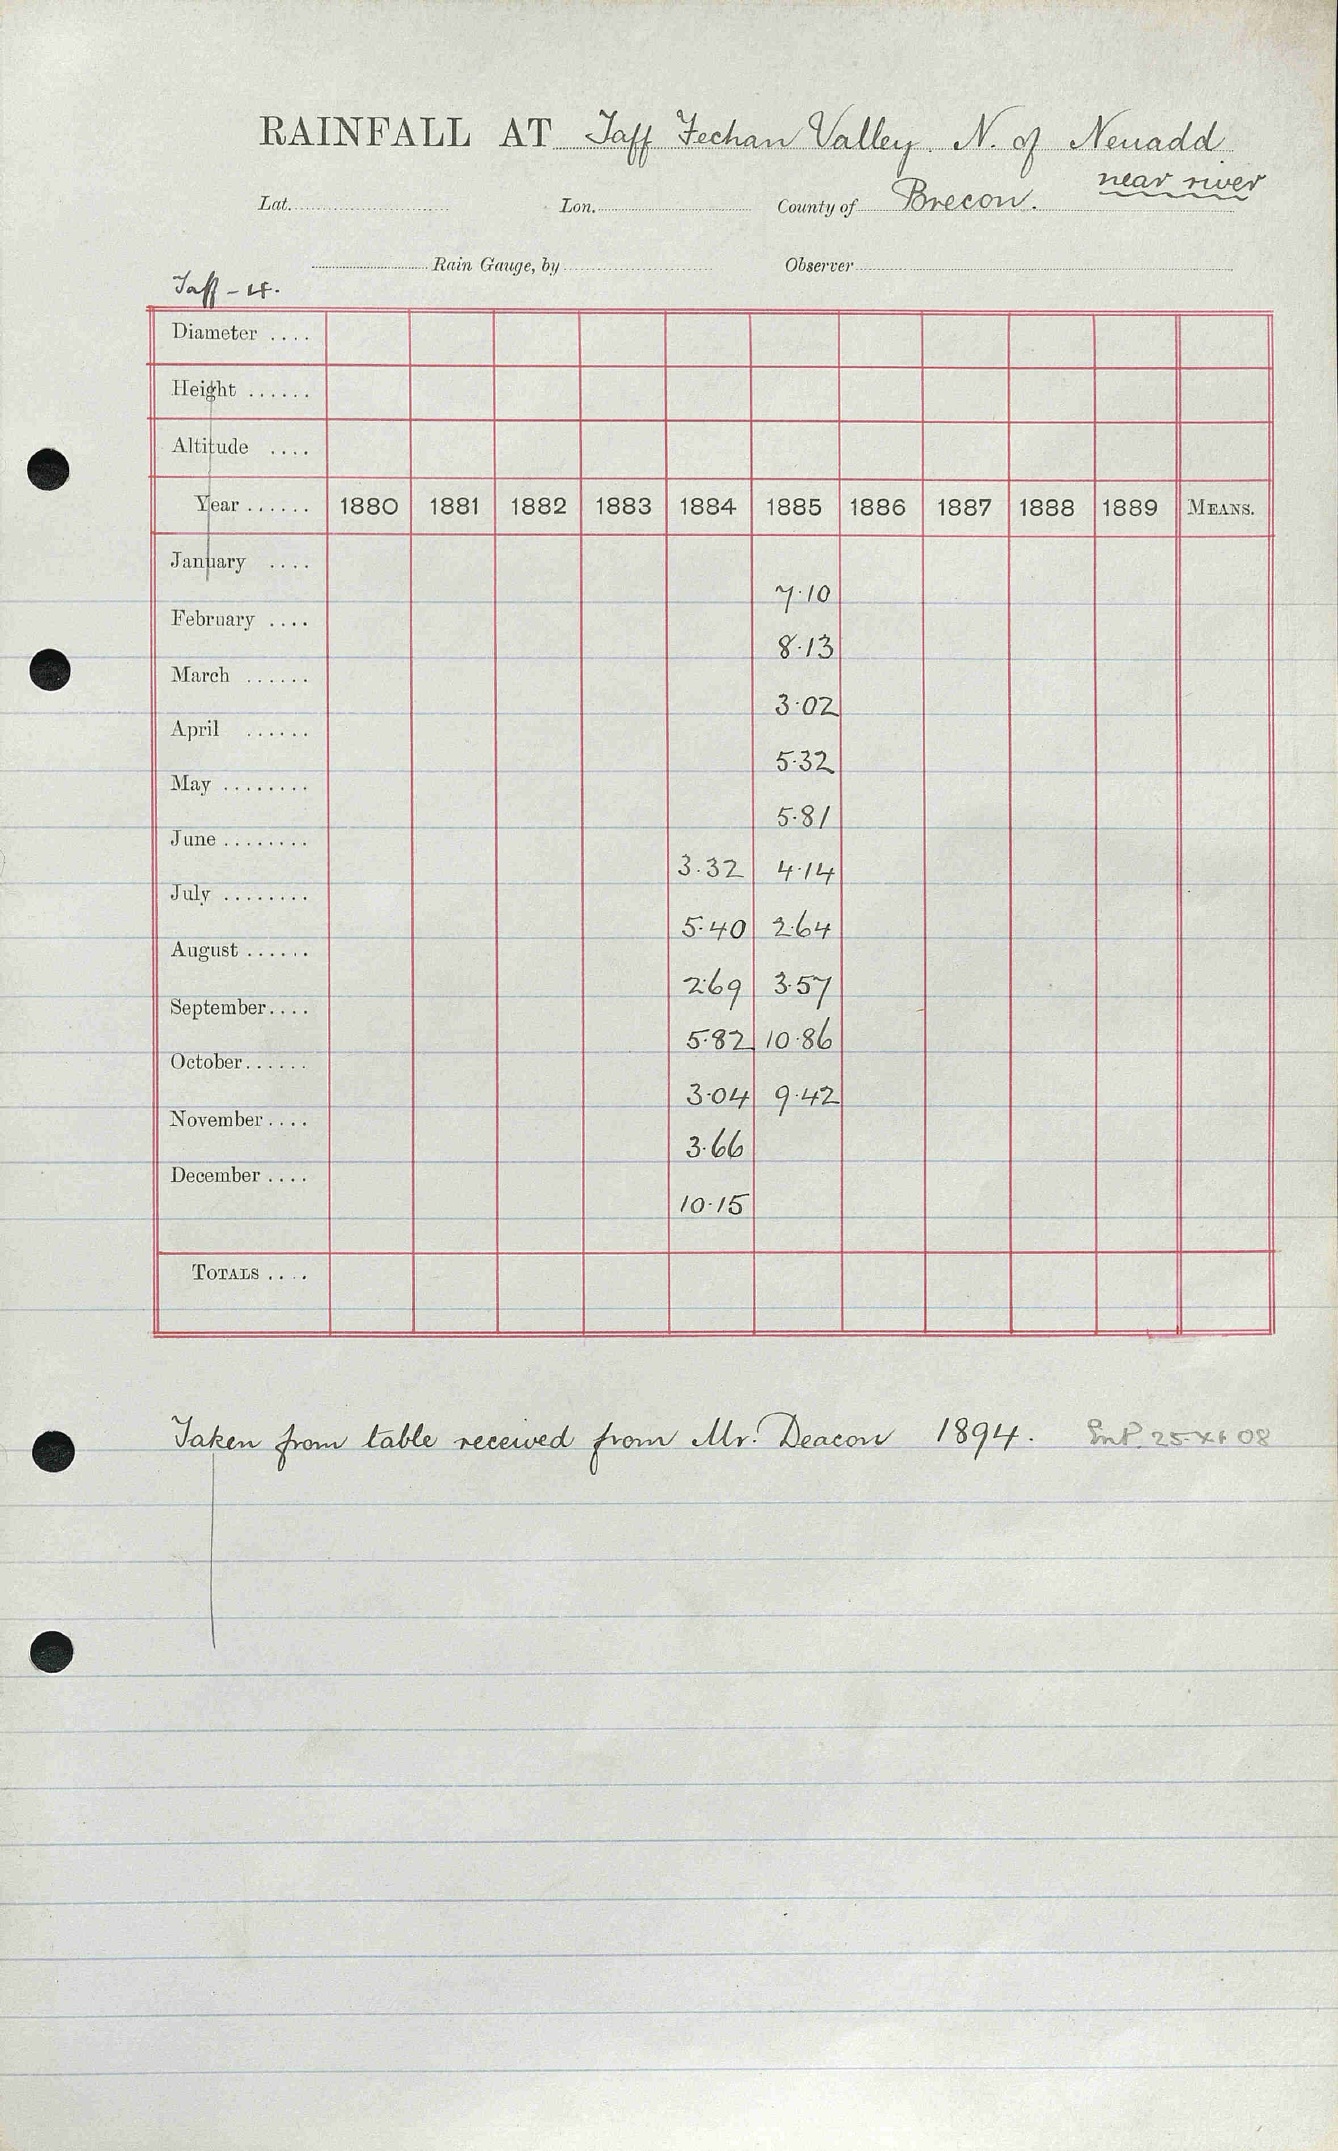 RAINFALL AT Taff Fechan Valley. N. of Neuadd
near river
Lat. Lon. County of Brecon.
Rain Gauge, by Observer
Taff - 4.
Diameter ....
Height ......
Altitude ....
Year ...... 1880 1881 1882 1883 1884 1885 1886 1887 1888 1889 MEANS.
January ....
7.10
February ....
8.13
March ......
3.02
April ......
5.32
May ........
5.81
June ........
3.32 4.14
July ........
5.40 2.64
August ......
2.69 3.57
September....
5.82 10.86
October......
3.04 9.42
November....
3.66
December ....
10.15
TOTALS ....
Taken from table received from Mr. Deacon 1894. 25 XI 08